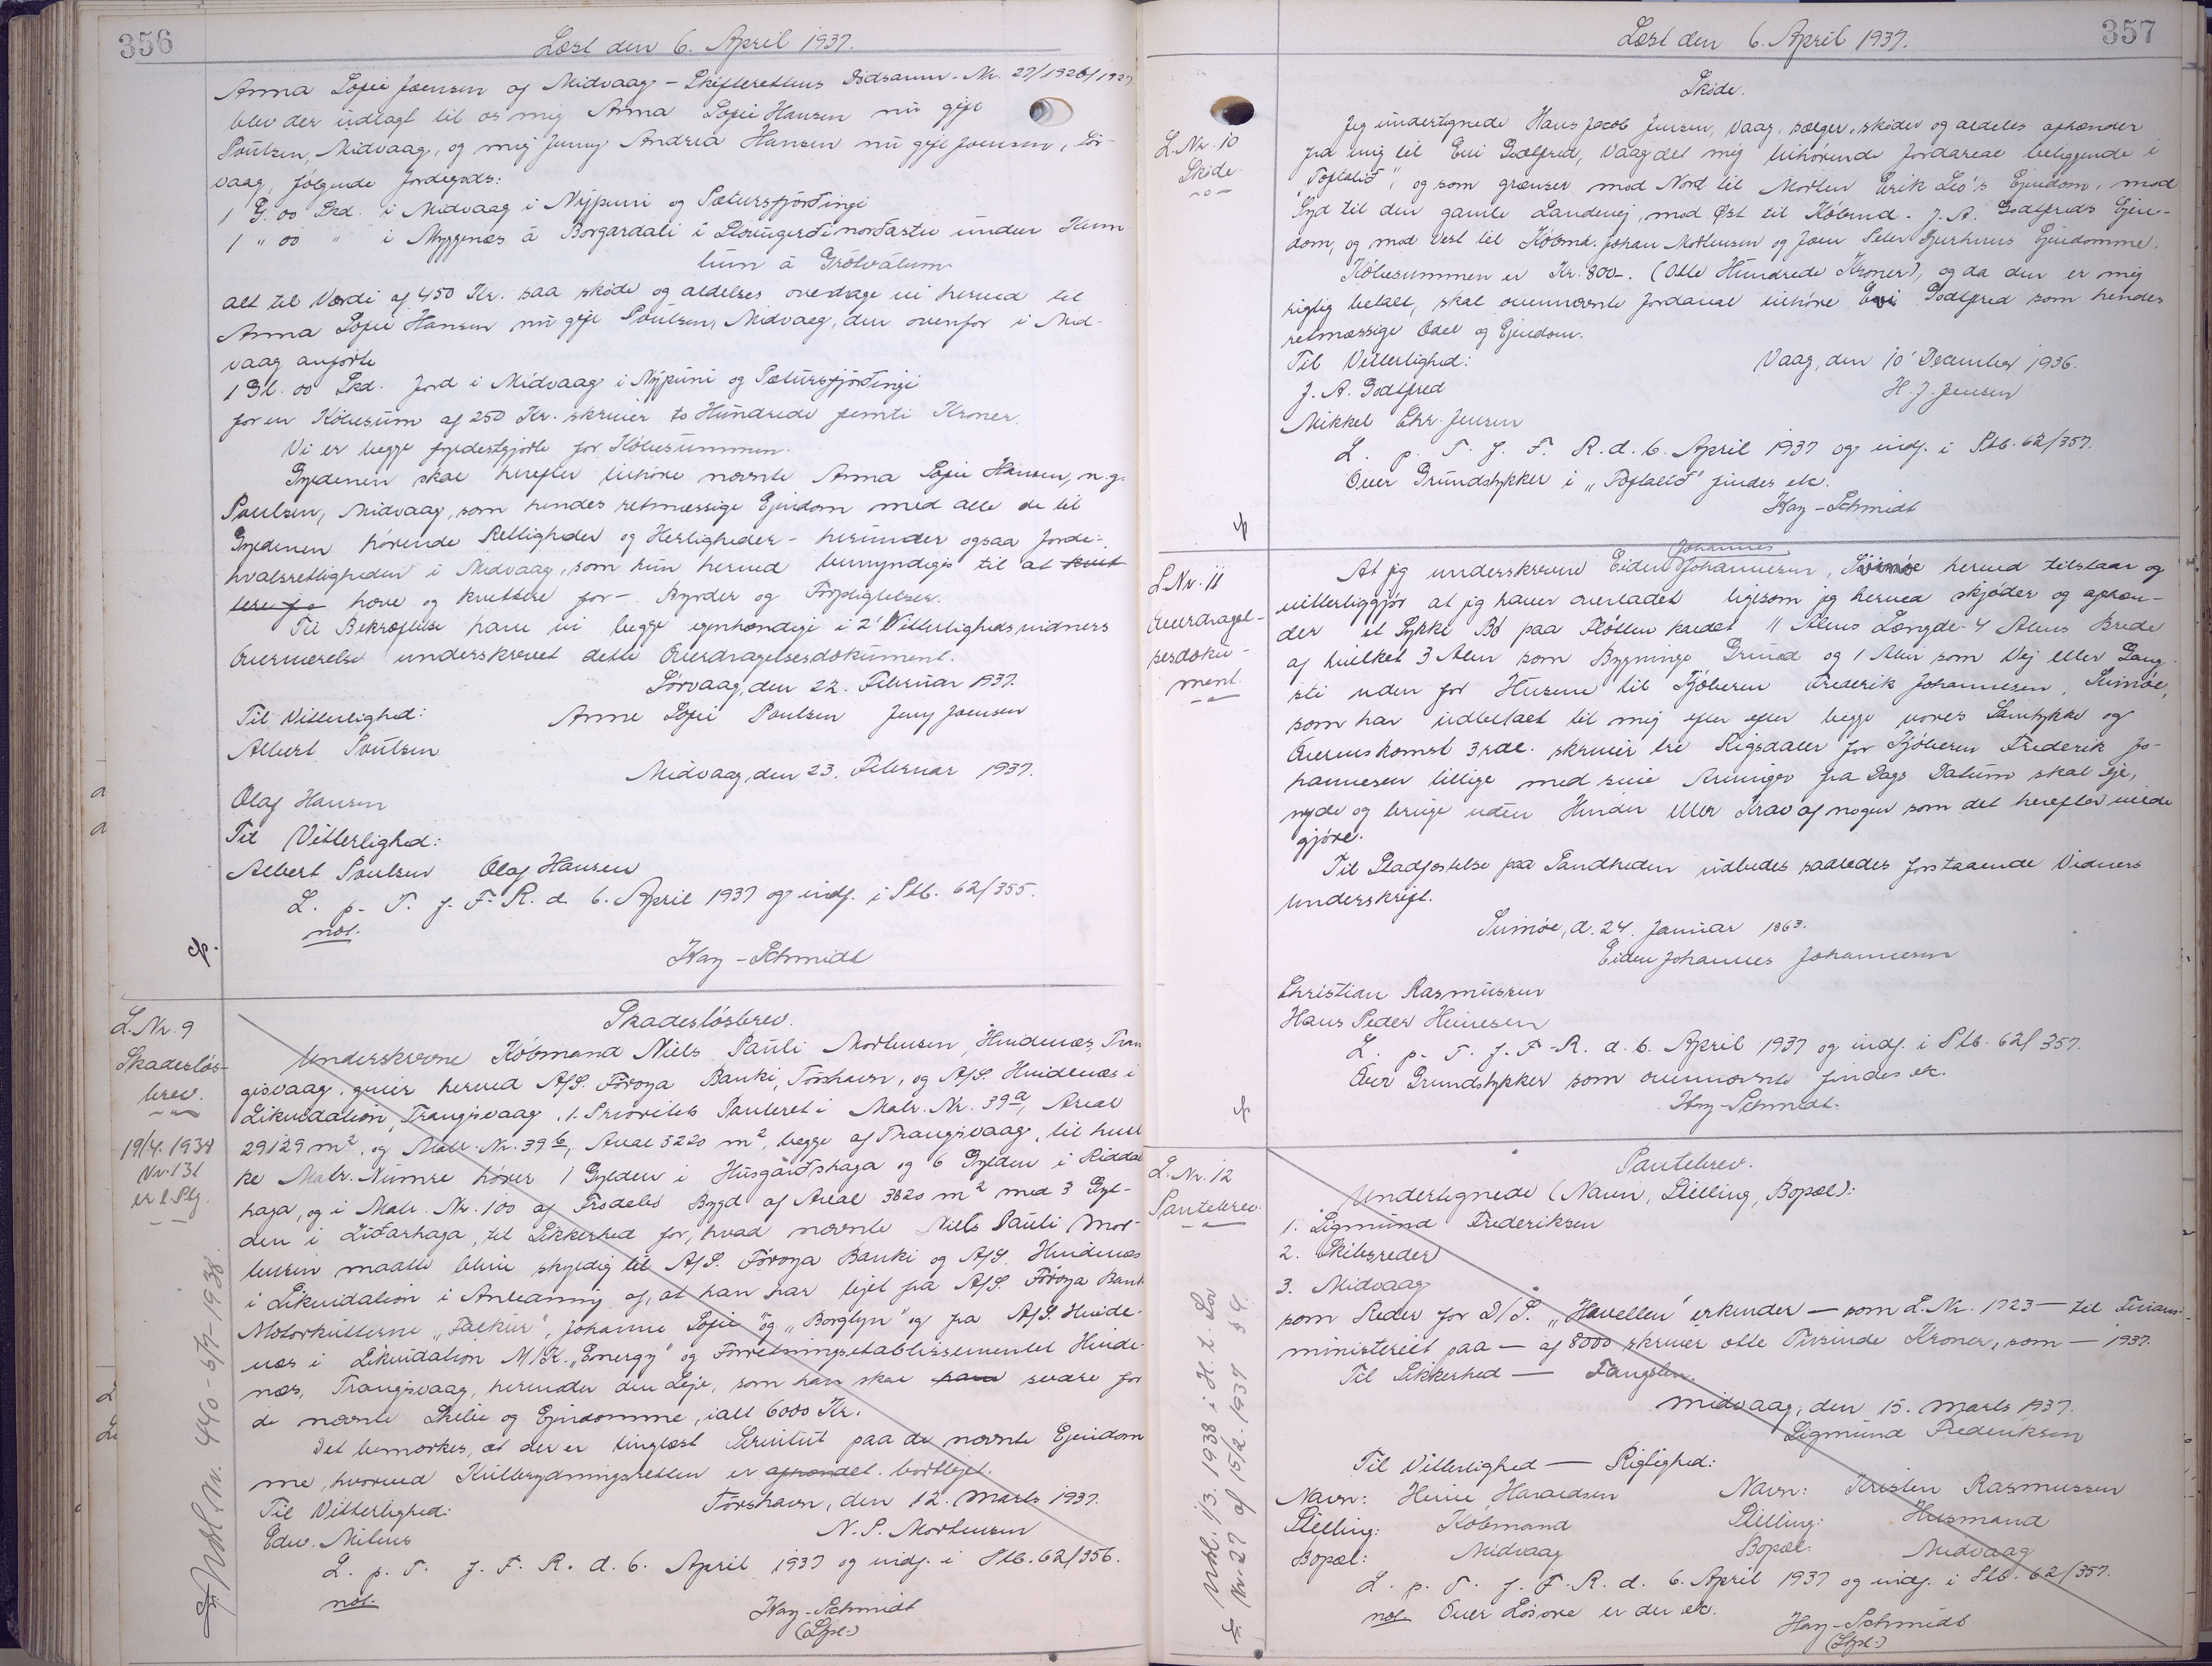 356
Læst den 6. April 1937.
Anna Sofie Joensen af Midvaag - Skifterettens Nr. 27/1926/1927
blev der udlagt til os mig Anna Sofie Hansen nu gift
Poulsen, Midvaag, og mig Jenny Andrea Hansen nu gift Joensen, Sör-
vaag, følgende Jordegods:
1 G. 00 Skd. i Midvaag i Nýpuni og Sætursfjórðingi
1 " 00 " i Myggenæs á Borgardali i norðastu undir
á
alt til Værdi af 450 Kr. saa skøde og aldeles overdrage vi herved til
Anna Sofie Hansen nu gift Poulsen, Midvaag, den ovenfor i Mid-
vaag anførte
1 Gl. 00 Skd. Jord i Midvaag i Nýpuni og Sætursfjórðingi
for en Købesum af 250 Kr. skriver to Hundrede femti Kroner.
Vi er begge fyldestgjorte for Købesummen.
Gyldenen skal herefter tilhøre nævnte Anna Sofie Hansen, n.g.
Poulsen, Midvaag, som hendes retmæssige Ejendom med alle de til
Gyldenen hørende Rettigheder og Herligheder - herunder ogsaa Jorde-
hvalsrettigheden i Midvaag, som hun herved bemyndiges til at kvit
tere for hæve og kvittere for - Byrder og Forpligtelser.
Til Bekræftelse have vi begge egenhændigt i 2' Vitterligheds vidners
Overværelse underskrevet dette Overdragelsesdokument.
Sörvaag, den 22. Februar 1937.
Til Vitterlighed: Anne Sofie Poulsen Jeny Joensen
Albert Poulsen
Midvaag, den 23. Februar 1937.
Olaf Hansen
Til Vitterlighed:
Albert Poulsen Olaf Hansen
L. p. T. f. F. R. d. 6. April 1937 og indf. i Ptb. 62/355.
not.
Kay-Schmidt
L. Nr. 9
Skadesløs-
brev.
19/4. 1938
Nr. 131
er l. Plg.
Nr. 440 - 5/7-1938.
Skadesløsbrev.
Underskrevne Købmand Niels Pauli Mortensen, Hvidenæs, Tran
gisvaag, giver herved A/S. Föroya Banki, Tórshavn, og A/S. Hvidenæs i
Likvidation, Trangisvaag, 1. Prioritets Panteret i Matr. Nr. 39a, Areal
29129 m², og Matr. Nr. 39b, Areal 3220 m², begge af Trangisvaag, til hvil
ke Matr. Numre hører 1 Gylden i Húsgarðshaga og 6 Gylden i
haga, og i Matr. Nr. 100 af Frodebø Bygd af Areal 3820 m² med 3 Gyl-
den i Liðarhaga, til Sikkerhed for, hvad nævnte Niels Pauli Mor-
tensen maatte blive skyldig til A/S. Föroya Banki og A/S. Hvidenæs
i Likvidation i Anledning af, at han har lejet fra A/S. Föroya Bank
Motorkutterne "Falkur", Johanne Sofie" og "Borglyn" og fra A/S. Hvide-
næs i Likvidation M/K. "Energy" og Forretningsetablissementet Hvide-
næs, Trangisvaag, herunder den Leje, som han skal svare for
de nævnte Skibe og Ejendomme, ialt 6000 Kr.
Det bemærkes, at der er tinglæst Servitut paa de nævnte Ejendom
me, hvorved Kulbrydningsretten er afhændet. bortlejet.
Til Vitterlighed: Tórshavn, den 12. Marts 1937.
Edw. Mitens N. P. Mortensen
L. p. T. f. F. R. d. 6. April 1937 og indf. i Ptb. 62/356.
not.
Kay-Schmidt
357
Læst den 6. April 1937.
L. Nr. 10
Skøde
Skøde.
Jeg undertegnede Hans Jacob Jensen, Vaag, sælger, skøder og aldeles afhænder
fra mig til Evi Godtfred, Vaag det mig tilhørende Jordareal beliggende i
"Toftalið", og som grænser mod Nord til Morten Eirik Leo's Ejendom, mod
Syd til den gamle Landevej, mod Øst til Købmd. J. A. Godtfreds Ejen-
dom, og mod Vest til Købmd. Johan Mortensen og Joen Peter Djurhuus Ejendomme.
Købesummen er Kr. 800-. (Otte Hundrede Kroner), og da den er mig
rigtig betalt, skal ovennævnte Jordareal tilhøre Evi Godtfred som hendes
retmæssige Odel og Ejendom.
Til Vitterlighed: Vaag, den 10' December 1936.
J. A. Godtfred H. J. Jensen
Mikkel Chr. Jensen
L. p. T. f. F. R. d. 6. April 1937 og indf. i Ptb. 62/357.
Over Grundstykker i "Toftalið" findes ek.
Kay-Schmidt
L. Nr. 11
Overdragel-
sesdoku-
ment.
Johannes
At jeg underskrevne Eiden Johannesen, Sumøe herved tilstaar og
vitterliggjør at jeg haver overladet ligesom jeg herved skjøder og afhæn-
der et Stykke Bö paa Flötten kaldet 11 Alens Længde 4 Alens Brede
af hvilket 3 Alen som Bygnings Grund og 1 Alen som Vej eller Gang-
sti uden for Husene til Kjöberen Frederik Johannesen, Sumøe,
som har udbetalt til mig efter efter begge vores Samtykke og
Overenskomst 3 rdl. skriver tre Rigsdaler for Kjöberen Frederik Jo-
hannesen tillige med sine Arvinger fra Dags Datum skal eje,
nyde og bruge uden Hinder eller Krav af nogen som det herefter vilde
gjöre.
Til Stadfæstelse paa Sandheden udbedes saaledes forstaaende Vidners
Underskrift.
Sumøe, d. 24. Januar 1863.
Eiden Johannes Johannesen
Christian Rasmussen
Hans Peder Heinesen
L. p. T. f. F. R. d. 6. April 1937 og indf. i Ptb. 62/357.
Over Grundstykker som ovennævnte findes ek.
Kay-Schmidt.
L. Nr. 12
Pantebrev.
Nr. 27 af 15/2. 1937 § 9.
Pantebrev.
Undertegnede (Navn, Stilling, Bopæl):
1. Sigmund Frederiksen
2. Skibsreder
3. Midvaag
som Reder for D/S. "Havellen" erkender - som L. Nr. 1723 - til Finans-
ministeriet paa - af 8000 skriver otte Tusinde Kroner, som - 1937.
Til Sikkerhed - Fangsten.
Midvaag, den 15. Marts 1937.
Sigmund Frederiksen
Til Vitterlighed - Rigtighed:
Navn: Heine Haraldsen Navn: Kristen Rasmussen
Stilling: Købmand Stilling: Husmand
Bopæl: Midvaag Bopæl: Midvaag
L. p. T. f. F. R. d. 6. April 1937 og indf. i Ptb. 62/357.
not. Over Løsøre er der ek.
Kay-Schmidt